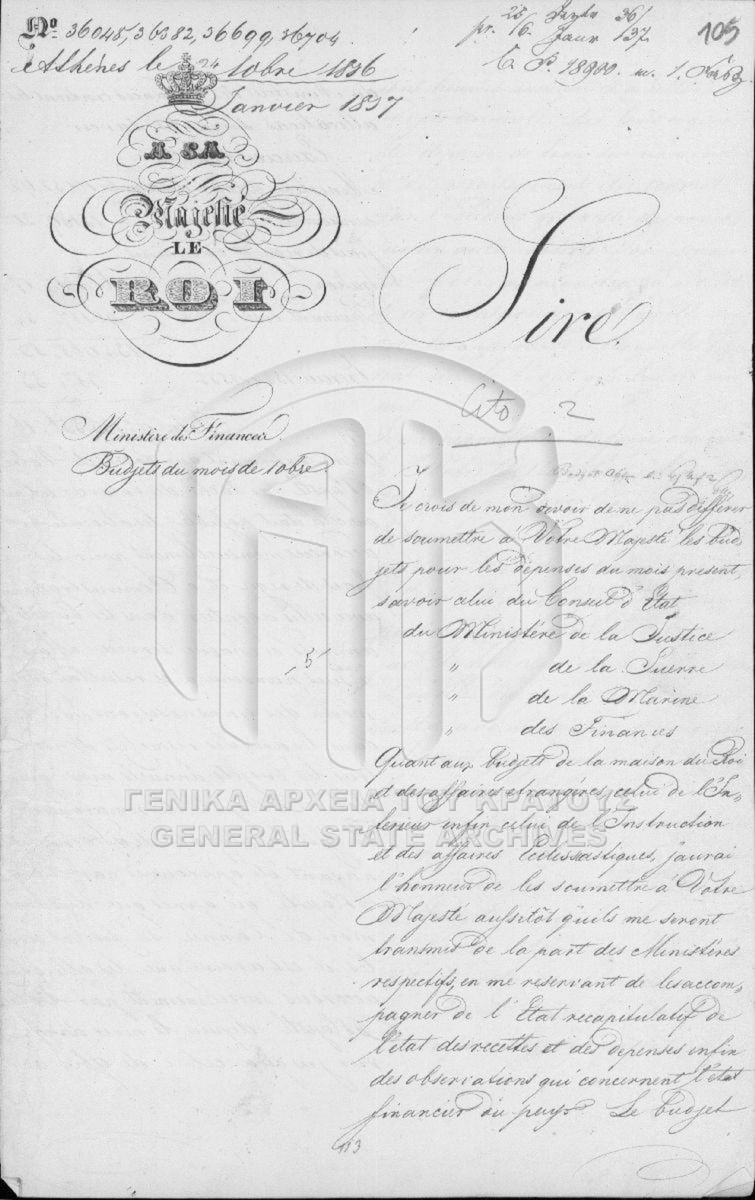 No 36045, 36382, 36699, 36704
Athènes le 24 10bre 1836
Janvier 1837
pr. 28 36/
16 Janr 137
105
A SA
Majesté
LE
ROI
Sire.
Cito 2
Ministère des Finances
Budgets du mois de 10bre
Je crois de mon devoir de ne pas différer
de soumettre à Vôtre Majesté les bud
jets pour les dépenses du mois présent,
savoir celui du Conseil d'Etat
du Ministère de la Justice
" de la Guerre
" de la Marine
" des Finances
- 5 -
Quant aux budjets de la maison du Roi
et des affaires etrangères, celui de l'In-
terieur enfin celui de l'Instruction
et des affaires Ecclessastiques, j'aurai
l'honneur de les soumettre à Vôtre
Majesté aussitôt qu'ils me seront
transmis de la part des Ministères
respectifs, en me reservant de les accom-
pagner de l'Etat recapitulatif de
l'etat des recettes et des depenses enfin
des observations qui concernent l'etat
financier du pays. Le budjet
113
ΓΕΝΙΚΑ ΑΡΧΕΙΑ ΤΟΥ ΚΡΑΤΟΥΣ
GENERAL STATE ARCHIVES